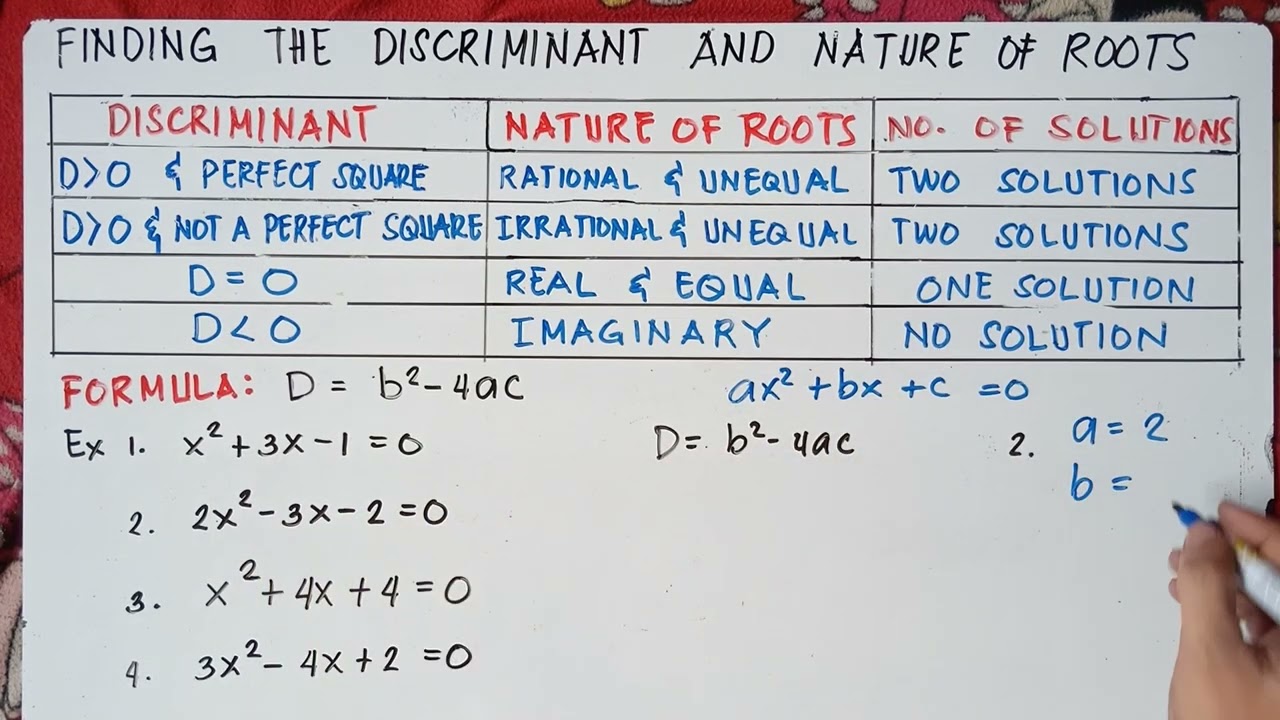 FINDING THE DISCRIMINANT AND NATURE OF ROOTS
DISCRIMINANT NATURE OF ROOTS NO. OF SOLUTIONS
D>0 & PERFECT SQUARE RATIONAL & UNEQUAL TWO SOLUTIONS
D>0 & NOT A PERFECT SQUARE IRRATIONAL & UNEQUAL TWO SOLUTIONS
D = 0 REAL & EQUAL ONE SOLUTION
D < 0 IMAGINARY NO SOLUTION
FORMULA: D = b² - 4ac ax² + bx + c = 0
Ex 1. x² + 3x - 1 = 0 D = b² - 4ac 2. a = 2
b =
2. 2x² - 3x - 2 = 0
3. x² + 4x + 4 = 0
4. 3x² - 4x + 2 = 0